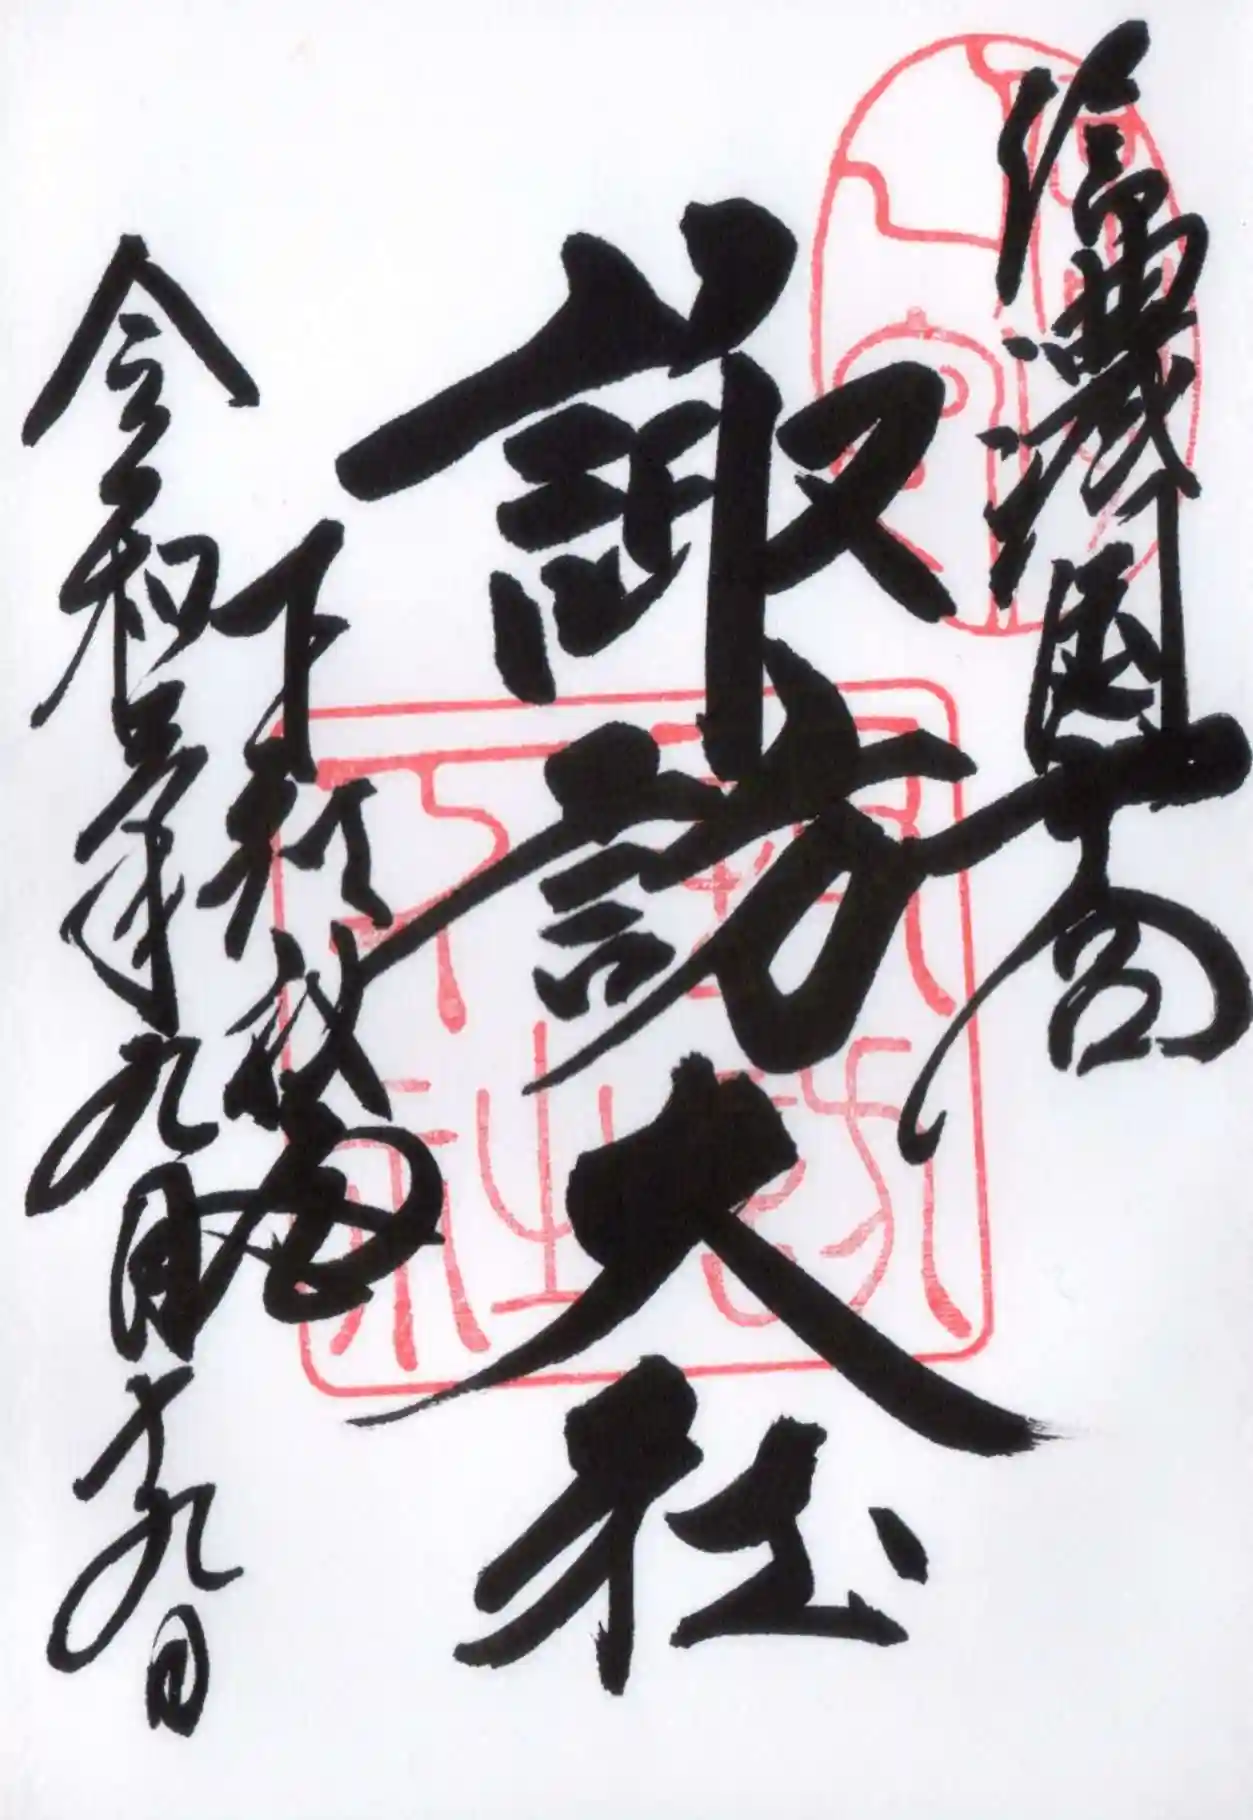 信濃國一宮
諏訪大社
下社秋宮
令和五年九月十九日